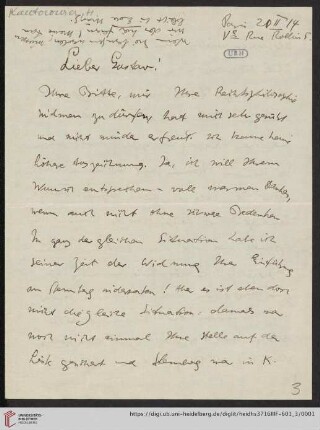 Kantorowicz, H.
Paris 20 II 14
Vᵉ Rue Rollin 5
UBH
Lieber Gustav!
Ihre Bitte, mir Ihre Rechtsphilosophie
widmen zu dürfen, hat mich sehr gerührt
und nicht minder erfreut. Ich kenne keine
höhere Auszeichnung. Ja, ich will Ihrem
Wunsch entsprechen – voll warmen Dankes,
wenn auch nicht ohne schwere Bedenken
In ganz der gleichen Situation habe ich
seiner Zeit der Widmung Ihrer Einführung
an Sternberg widerraten! Hier ist es eben doch
nicht die gleiche Situation: damals war
noch nicht einmal Ihre Stelle auf der
Liste gesichert und Sternberg war in K-
3
UNIVERSITÄTS-
BIBLIOTHEK
HEIDELBERG
https://digi.ub.uni-heidelberg.de/diglit/heidhs3716IIIF-601_2/0001